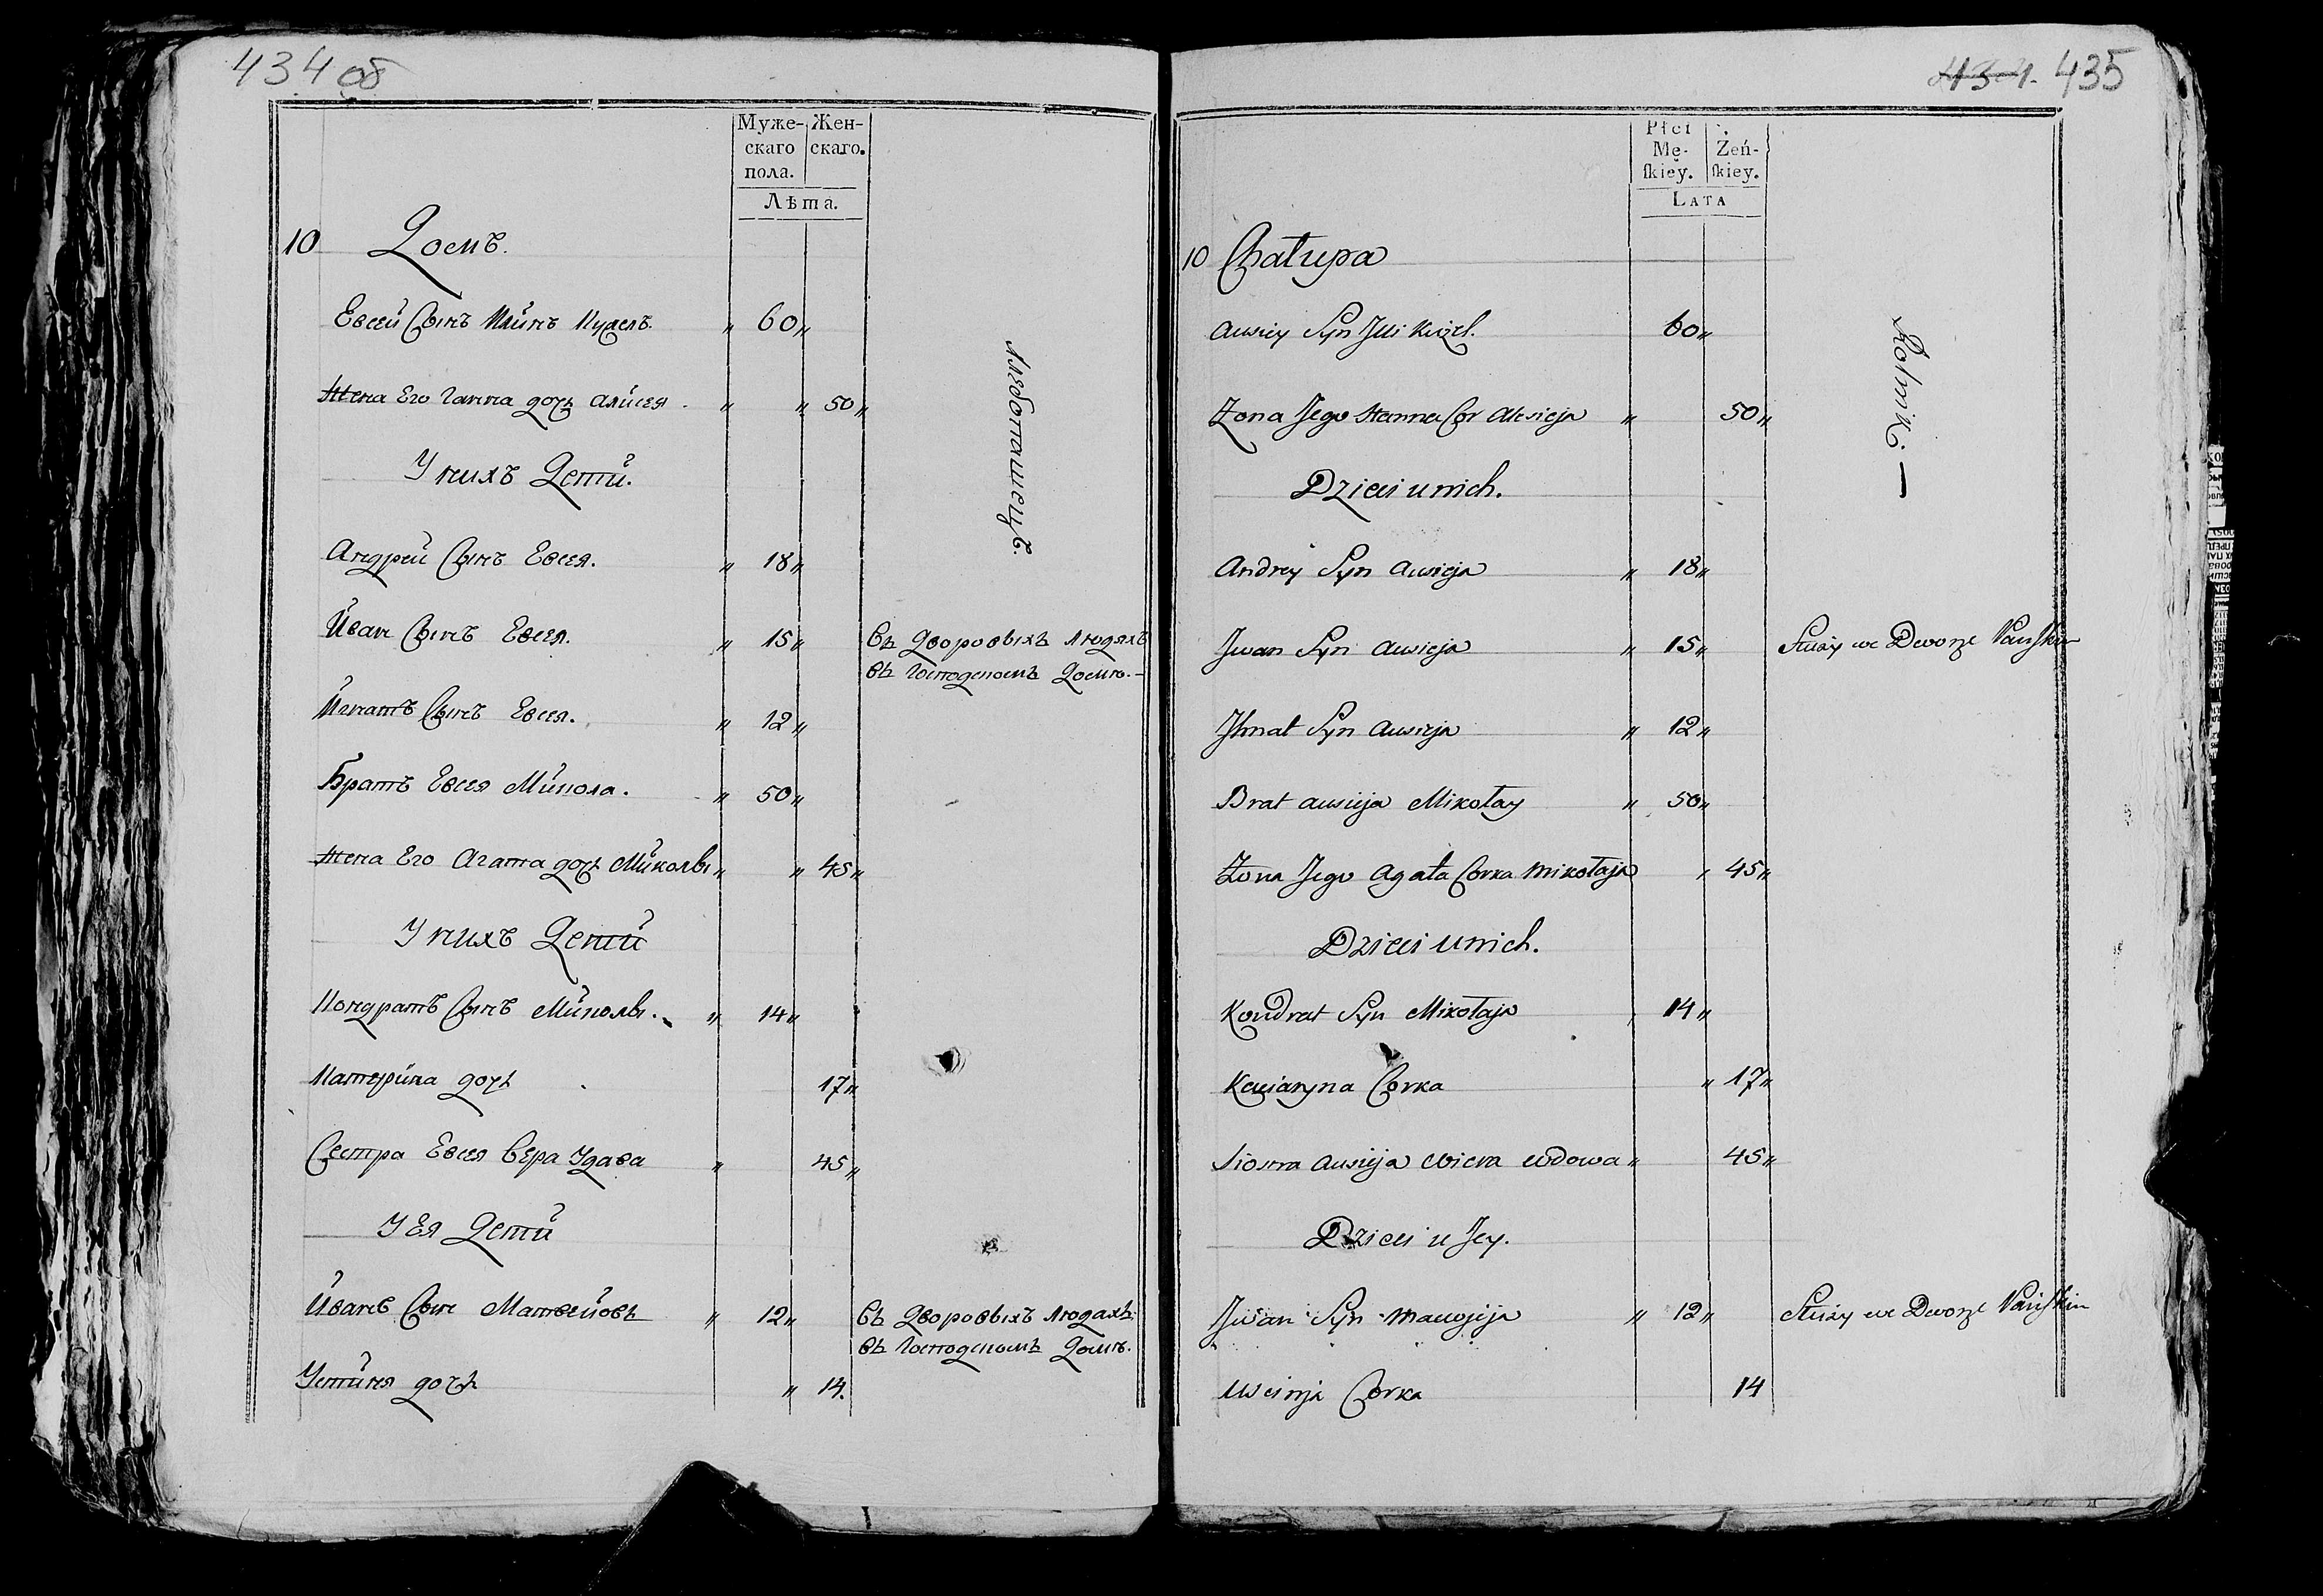 434 об
Муже- Жен-
скаго скаго.
пола.
Лѣта.
10 Домъ.
Евсей Сынъ Илинъ Кужель. " 60 "
Жена Его Ганна дочь Алисея. " " 50 "
У нихъ Дети.
Андрей Сынъ Евсея. " 18 "
Иван Сынъ Евсея. " 15 " въ Дворовыхъ Людяхъ
въ Господскомъ Домѣ.-
Игнатъ Сынъ Евсея. " 12 "
Братъ Евсея Микола. " 50 "
Жена Его Агата дочь Миколы " " 45 "
У нихъ Дети
Кондратъ Сынъ Миколы. " 14 "
Катерина дочь 17 "
Сестра Евсея Вера Удава " 45 "
У Ея Дети
Иванъ Сын Матвейовъ " 12 " въ Дворовыхъ Людахъ.
въ Господскомъ Домѣ.
Устиня дочь " 14.
Хлѣбопашецъ.
434. 435
Płci
Mę- Żeń-
ſkiey. ſkiey.
LATA
10 Chałupa
Awsiey Syn Jlli Kużel. 60 "
Żona Jego Hanna Cor Alesieja " 50 "
Dzieci u nich.
Andrey Syn Awsieja " 18 "
Jwan Syn Awsieja " 15 " Służy we Dworze Pańskim
Jhnat Syn Awsieja " 12 "
Brat Awsieja Mikołay " 50 "
Żona Jego Agata Corka Mikołaja " 45 "
Dzieci u nich.
Kondrat Syn Mikołaja " 14 "
Kaciaryna Corka " 17 "
Siostra Awsieja Wiera Wdowa " 45 "
Dzieci u Jey.
Jwan Syn Maciejja " 12 " Służy we Dworze Pańskim
Uścinja Corka 14
Rolnik. —